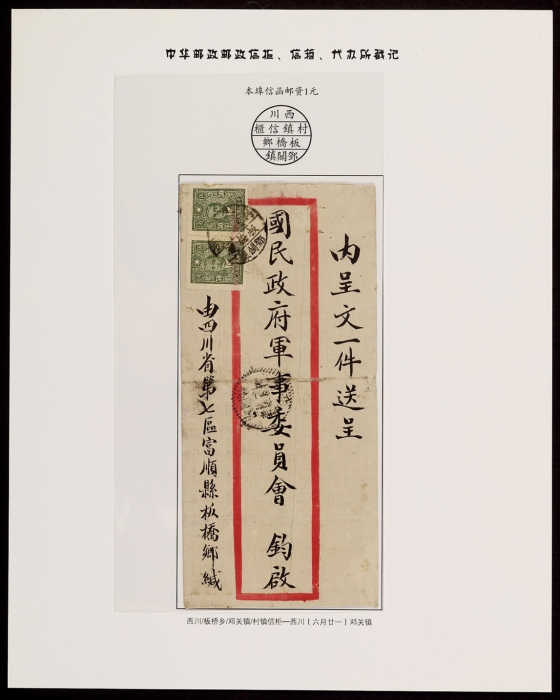 中华邮政邮政信柜、信箱、代办所戳记
本埠信函邮资1元
西川
村鎮信櫃
板橋鄉
鄧關鎮
内呈文一件送呈
國民政府軍事委員會 鈞啟
由四川省第七區富順縣板橋鄉緘
西川/板桥乡/邓关镇/村镇信柜—西川（六月廿一）邓关镇